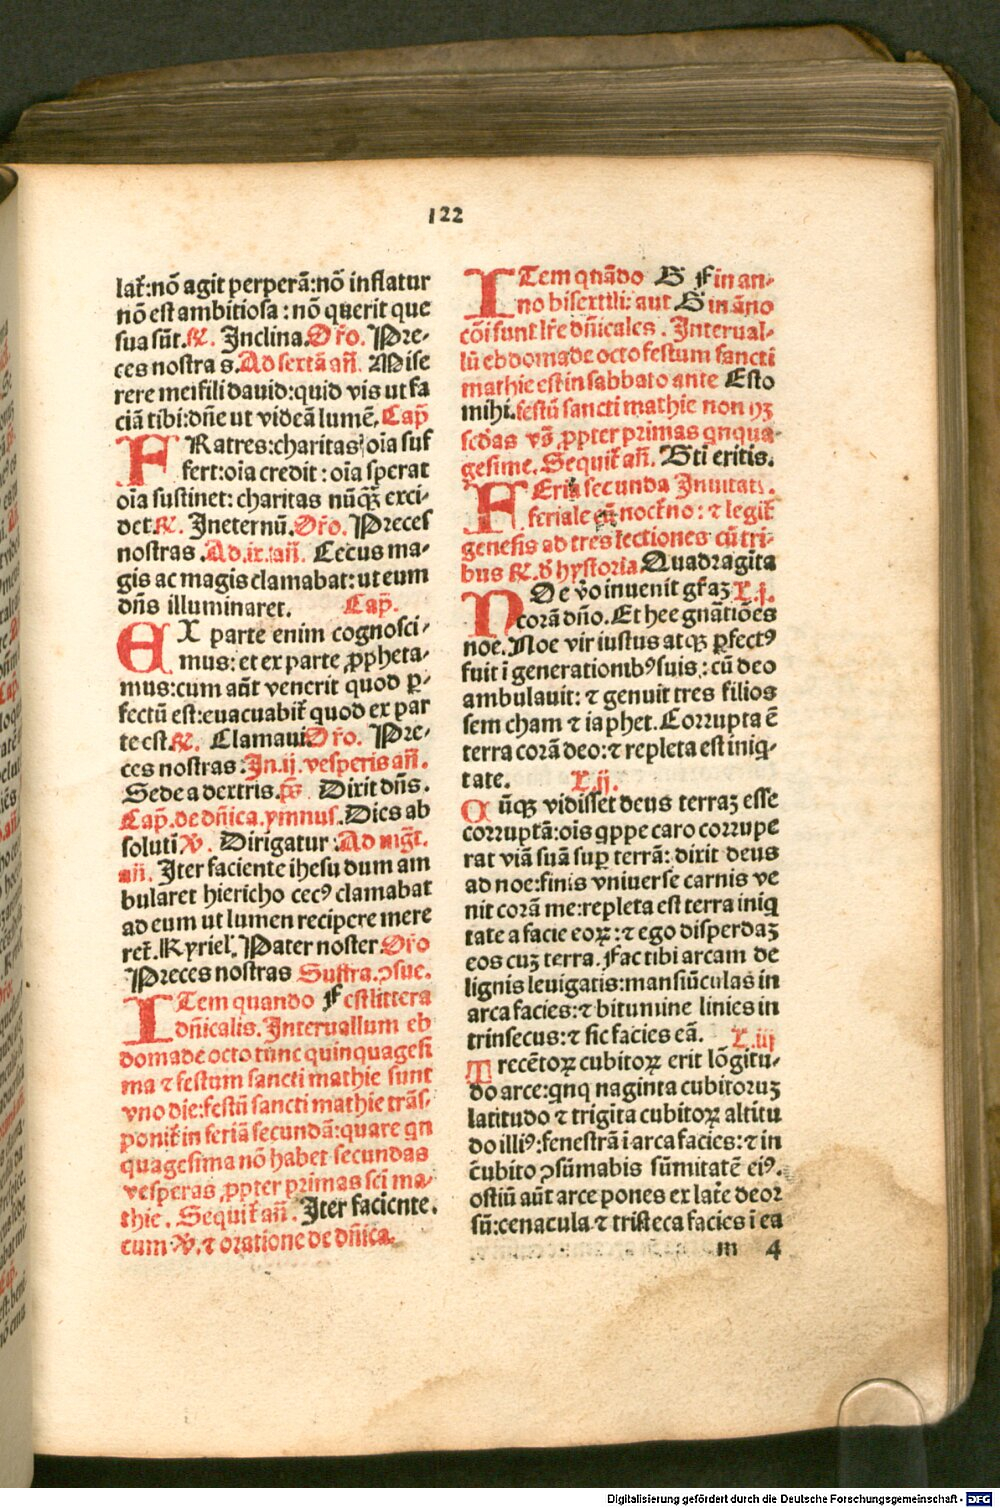 122
lat᷑:nõ agit perperã:nõ inflatur
nõ est ambitiosa : nõ querit que
sua sũt.℟. Inclina.Or̃o. Pre-
ces nostra s.Ad sextã añ. Mise
rere mei fili dauid:quid vis ut fa
ciã tibi:dñe ut videã lumẽ.Cap̃
FRatres:charitas oĩa suf
fert:oĩa credit : oĩa sperat
oĩa sustinet: charitas nũq̃ exci-
det.℟. Ineternũ.Or̃o. Preces
nostras .Ad.ix.añ. Cecus ma-
gis ac magis clamabat: ut eum
dñs illuminaret. Cap̃.
EX parte enim cognosci-
mus: et ex parte ꝓpheta-
mus:cum aũt venerit quod ꝑ-
fectũ est:euacuabit᷑ quod ex par
te est.℟. Clamaui Or̃o. Pre-
ces nostras:In.ij.vesperis añ.
Sede a dextris.ps̃ Dixit dñs.
Cap̃.de dñica.ymnus.Dies ab
soluti ℣. Dirigatur :Ad mg̃t.
añ. Iter faciente ihesu dum am
bularet hiericho cecꝰ clamabat
ad eum ut lumen recipere mere
ret᷑. Kyriel'. Pater noster.Or̃o
Preces nostras Suffra.ꝯsue.
ITem quando F est littera
dñicalis. Interuallum eb
domade octo tunc quinquagesi
ma ⁊ festum sancti mathie sunt
vno die:festũ sancti mathie trãs-
ponit᷑ in feriã secundã:quare qn
quagesima nõ habet secundas
vesperas ꝓpter primas sci ma-
thie . Sequit᷑ añ. Iter faciente.
cum ℣. ⁊ oratione de dñica.
ITem quãdo G F in an-
no bisexttli: aut G in ãno
cõi sunt lr̃e dñicales . Interual-
lũ ebdomade octo festum sancti
mathie est in sabbato ante Esto
mihi.festũ sancti mathie non hꝫ
scd̃as vs̃ ꝓpter primas qnqua-
gesime. Sequit᷑ añ. Bti eritis.
FEria secunda Inuitat.
feriale cũ noct᷑no: ⁊ legit᷑
genesis ad tres lectiones cũ tri-
bus ℟.d̃ hystoria.Quadragĩta
NOe v̊o inuenit gr̃aꝫ L.j.
corã dño. Et hee gnãtiões
noe. Noe vir iustus atqꝫ ꝑfectꝰ
fuit ĩ generationibꝰ suis : cũ deo
ambulauit: ⁊ genuit tres filios
sem cham ⁊ iaphet. Corrupta ẽ
terra corã deo: ⁊ repleta est iniq̇-
tate. L.ij.
Cũqꝫ vidisset deus terraꝫ esse
corruptã: oĩs q̇ppe caro corrupe
rat viã suã suꝑ terrã: dixit deus
ad noe:finis vniuerse carnis ve
nit corã me:repleta est terra iniq̇
tate a facie eoꝝ : ⁊ ego disperdaꝫ
eos cuꝫ terra. Fac tibi arcam de
lignis leuigatis:mansiũculas in
arca facies: ⁊ bitumine linies in
trinsecus: ⁊ sic facies eã. L.iij
Trecẽtoꝝ cubitoꝝ erit lõgitu-
do arce:qnq̃ naginta cubitoruꝫ
latitudo ⁊ trigĩta cubitoꝝ altitu
do illiꝰ:fenestrã ĩ arca facies: ⁊ in
cũbito ꝯsũmabis sũmitatẽ eiꝰ.
ostiũ aũt arce pones ex lat᷑e deor
sũ:cenacula ⁊ tristeca facies ĩ ea
m 4
Digitalisierung gefördert durch die Deutsche Forschungsgemeinschaft - DFG